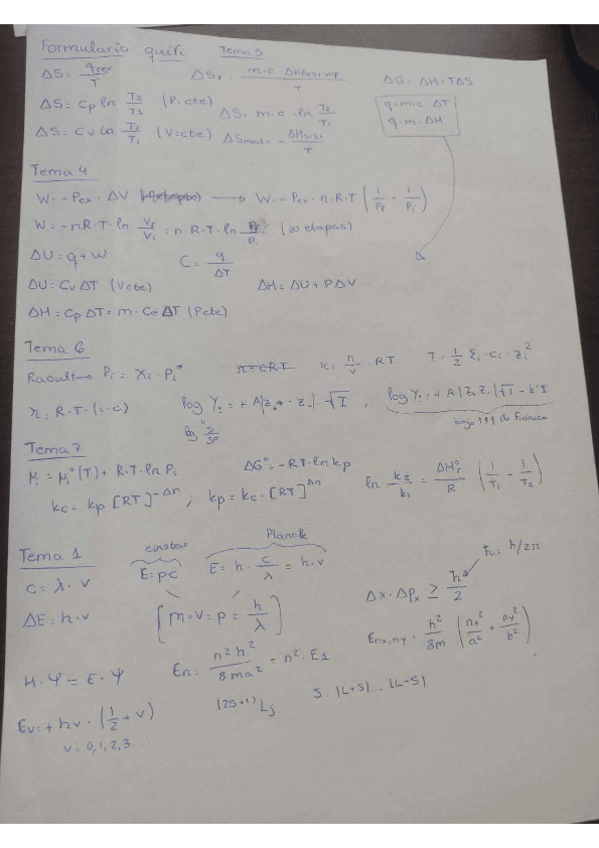 Formulario quifi Tema 5
ΔS = q rev / T ΔS, = m·c·ΔHfus,vap / T ΔG = ΔH - TΔS
ΔS = Cp ln T2/T1 (P.cte) ΔS = m·c·ln T2/T1 q = m·c·ΔT
ΔS = Cv ln T2/T1 (V.cte) ΔSmed. = - ΔHsist / T q = m·ΔH
Tema 4
W = -Pex · ΔV → W = - Pex · n·R·T (1/Pf - 1/Pi)
W = -nR·T·ln Vf/Vi = n·R·T·ln Pf/Pi (∞ etapas)
ΔU = q + W C = q/ΔT
ΔU = Cv ΔT (Vcte) ΔH = ΔU + PΔV
ΔH = Cp ΔT = m·Ce ΔT (Pcte)
Tema 6
Raoult → Pi = Xi · Pi* π = CRT π = n/v · RT I = 1/2 Σi · ci · zi²
π = R·T·(i·c) log γ± = + A|z+ · z-| √I , log γ± = + A | z+ z- | √I - k'I
log s/s0 bajo 111 de Fiónica
Tema 7
μi = μi°(T) + R·T·ln Pi ΔG° = -RT·ln kp ln k2/k1 = ΔH°r/R (1/T1 - 1/T2)
kc = kp [RT]^-Δn ; kp = kc · [RT]^Δn
Tema 1 einstein Planck ħ = h/2π
c = λ · ν E = p·c E = h · c/λ = h·ν
ΔE = h·ν [m·v = p = h/λ] Δx · Δpx ≥ ħ/2
H·Ψ = E·Ψ En = n²h²/8ma² = n²·E1 Enx,ny = h²/8m (nx²/a² + ny²/b²)
Ev = + hν · (1/2 + v) (2S+1) LJ S (L+S)...(L-S)
v = 0,1,2,3...